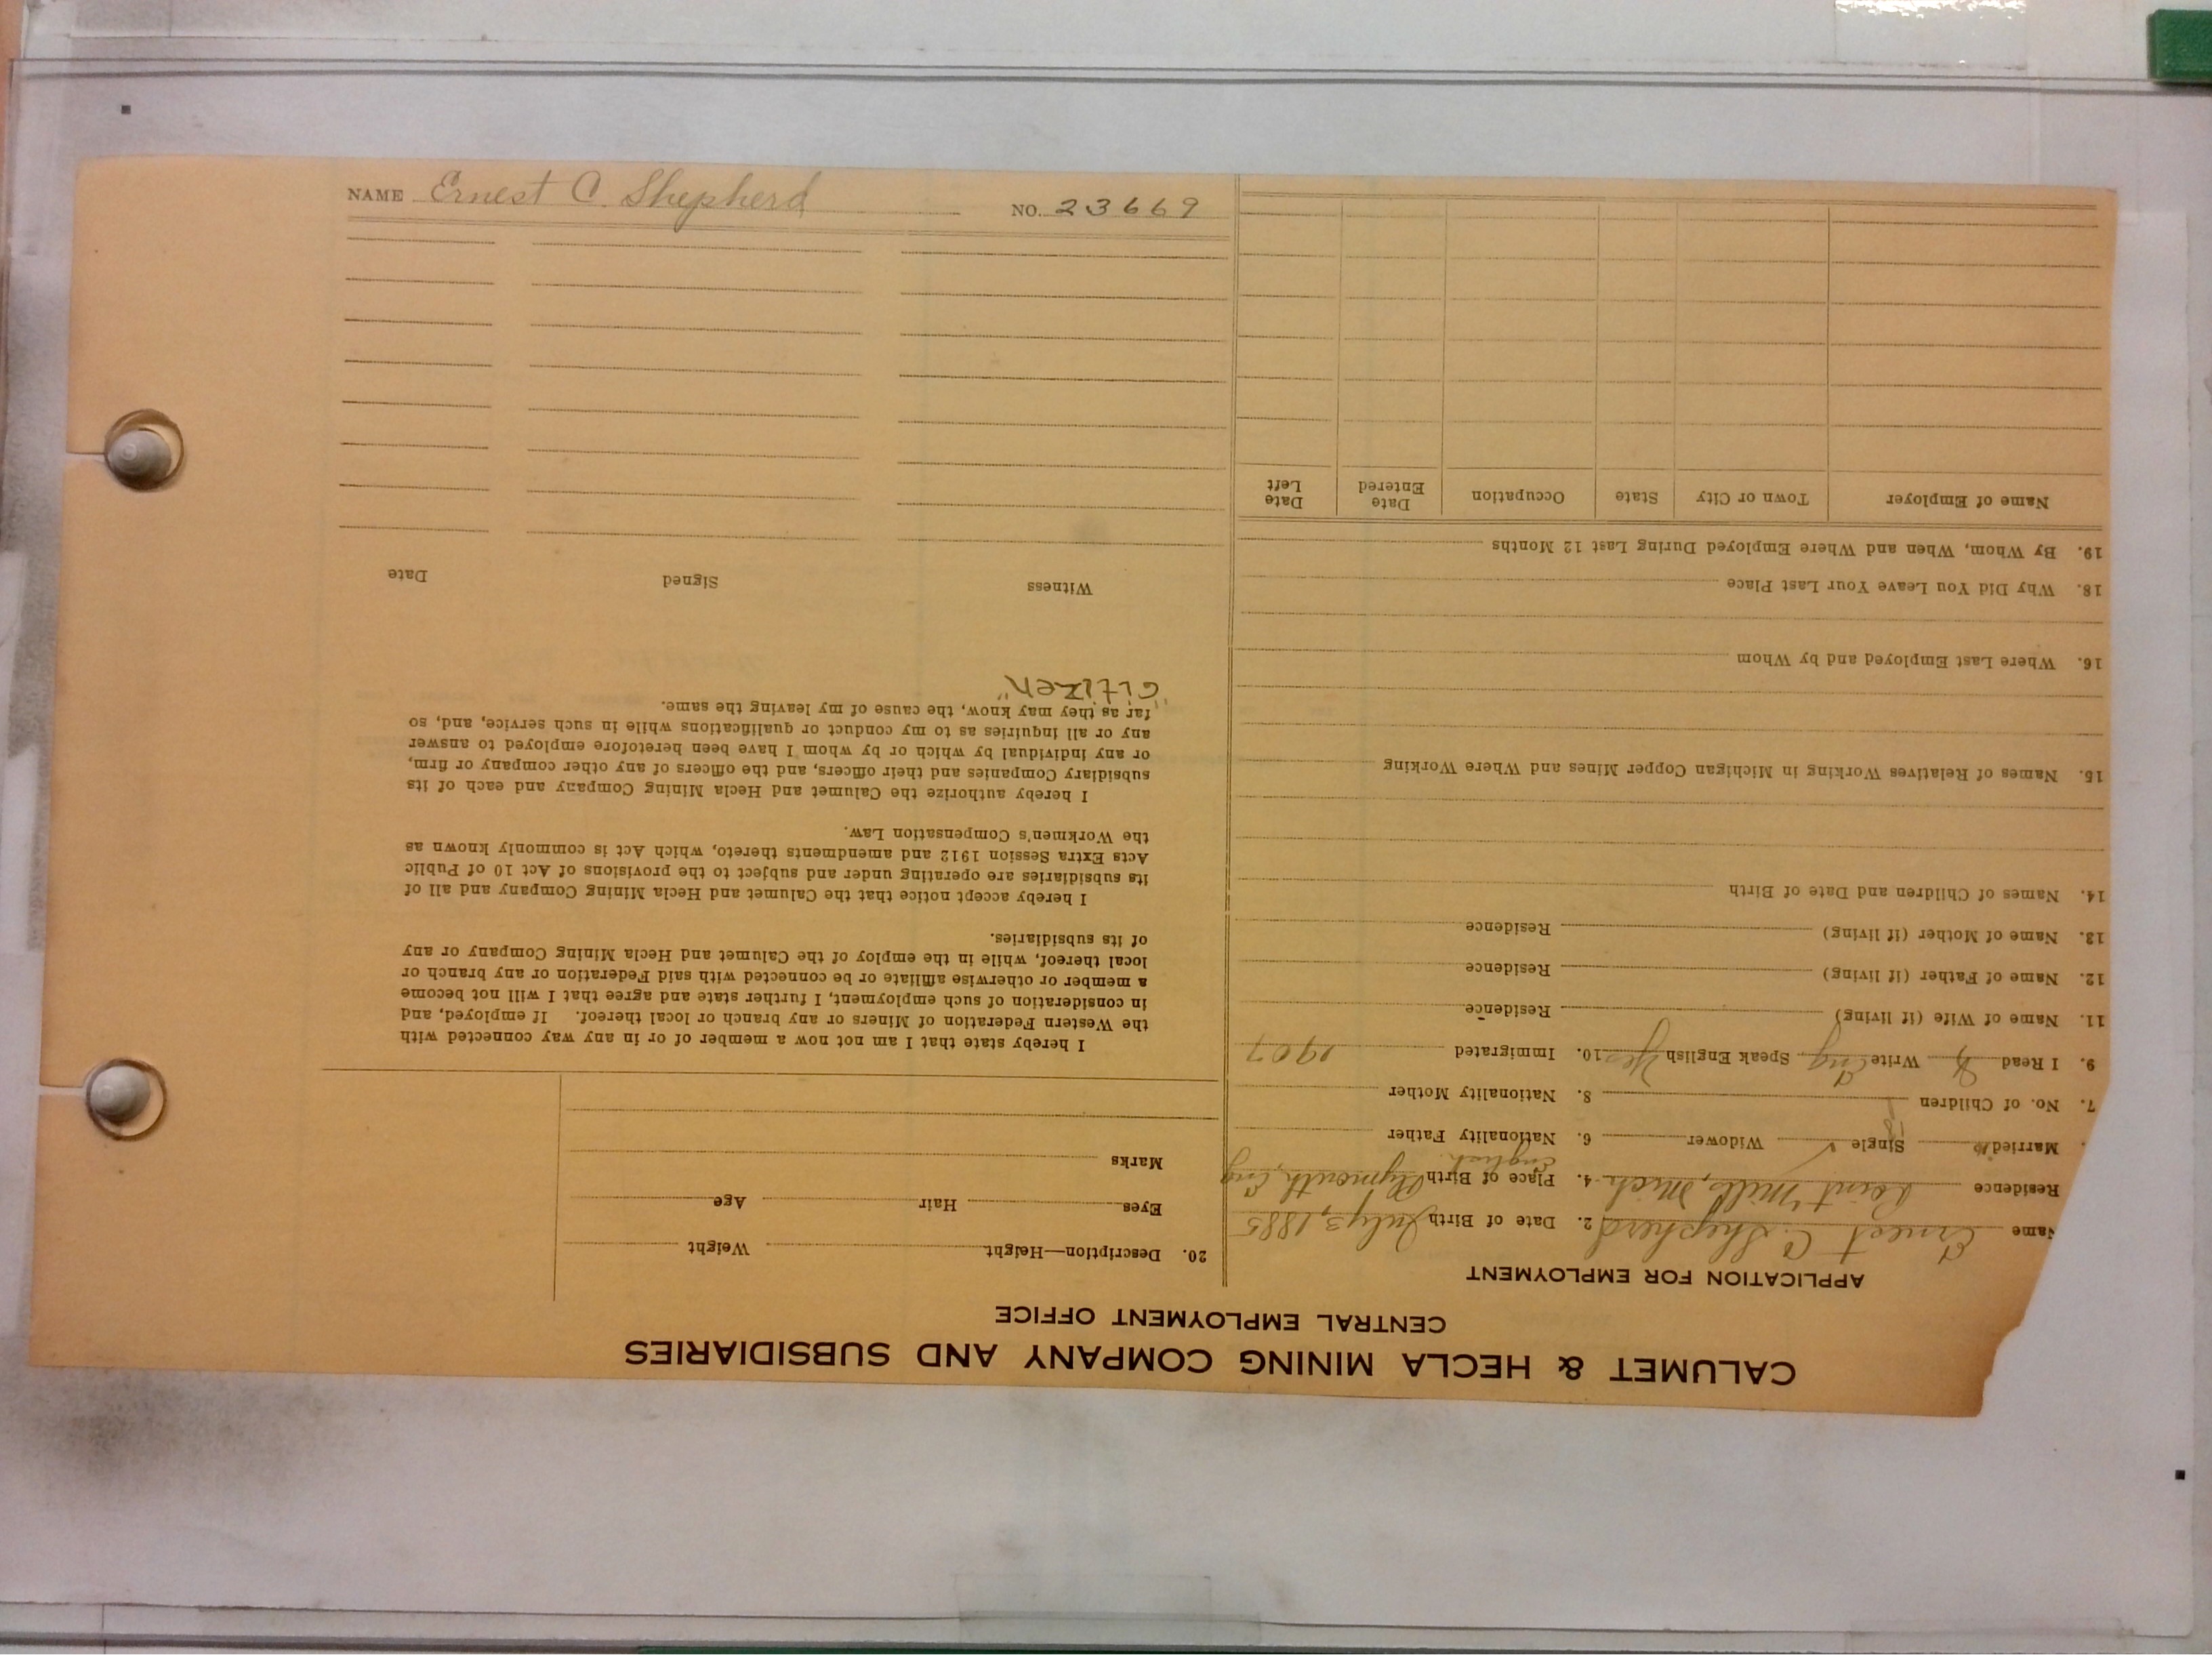 NAME Ernest C. Shepherd NO. 23669
CALUMET & HECLA MINING COMPANY AND SUBSIDIARIES
CENTRAL EMPLOYMENT OFFICE
APPLICATION FOR EMPLOYMENT
Name Ernest C. Shepherd 2. Date of Birth July 3, 1885
Residence Point Mills, Mich. 4. Place of Birth Plymouth, Eng
Married Single ✓ Widower 6. Nationality Father English
7. No. of Children 8. Nationality Mother
9. I Read Write Eng Speak English Yes 10. Immigrated 1907
11. Name of Wife (if living) Residence
12. Name of Father (if living) Residence
13. Name of Mother (if living) Residence
14. Names of Children and Date of Birth
15. Names of Relatives Working in Michigan Copper Mines and Where Working
16. Where Last Employed and by Whom
18. Why Did You Leave Your Last Place
19. By Whom, When and Where Employed During Last 12 Months
Name of Employer Town or City State Occupation Date Entered Date Left
20. Description—Height Weight
Eyes Hair Age
Marks
I hereby state that I am not now a member of or in any way connected with
the Western Federation of Miners or any branch or local thereof. If employed, and
in consideration of such employment, I further state and agree that I will not become
a member or otherwise affiliate or be connected with said Federation or any branch or
local thereof, while in the employ of the Calumet and Hecla Mining Company or any
of its subsidiaries.
I hereby accept notice that the Calumet and Hecla Mining Company and all of
its subsidiaries are operating under and subject to the provisions of Act 10 of Public
Acts Extra Session 1912 and amendments thereto, which Act is commonly known as
the Workmen's Compensation Law.
I hereby authorize the Calumet and Hecla Mining Company and each of its
subsidiary Companies and their officers, and the officers of any other company or firm,
or any individual by which or by whom I have been heretofore employed to answer
any or all inquiries as to my conduct or qualifications while in such service, and, so
far as they may know, the cause of my leaving the same.
"Citizen"
Witness Signed Date